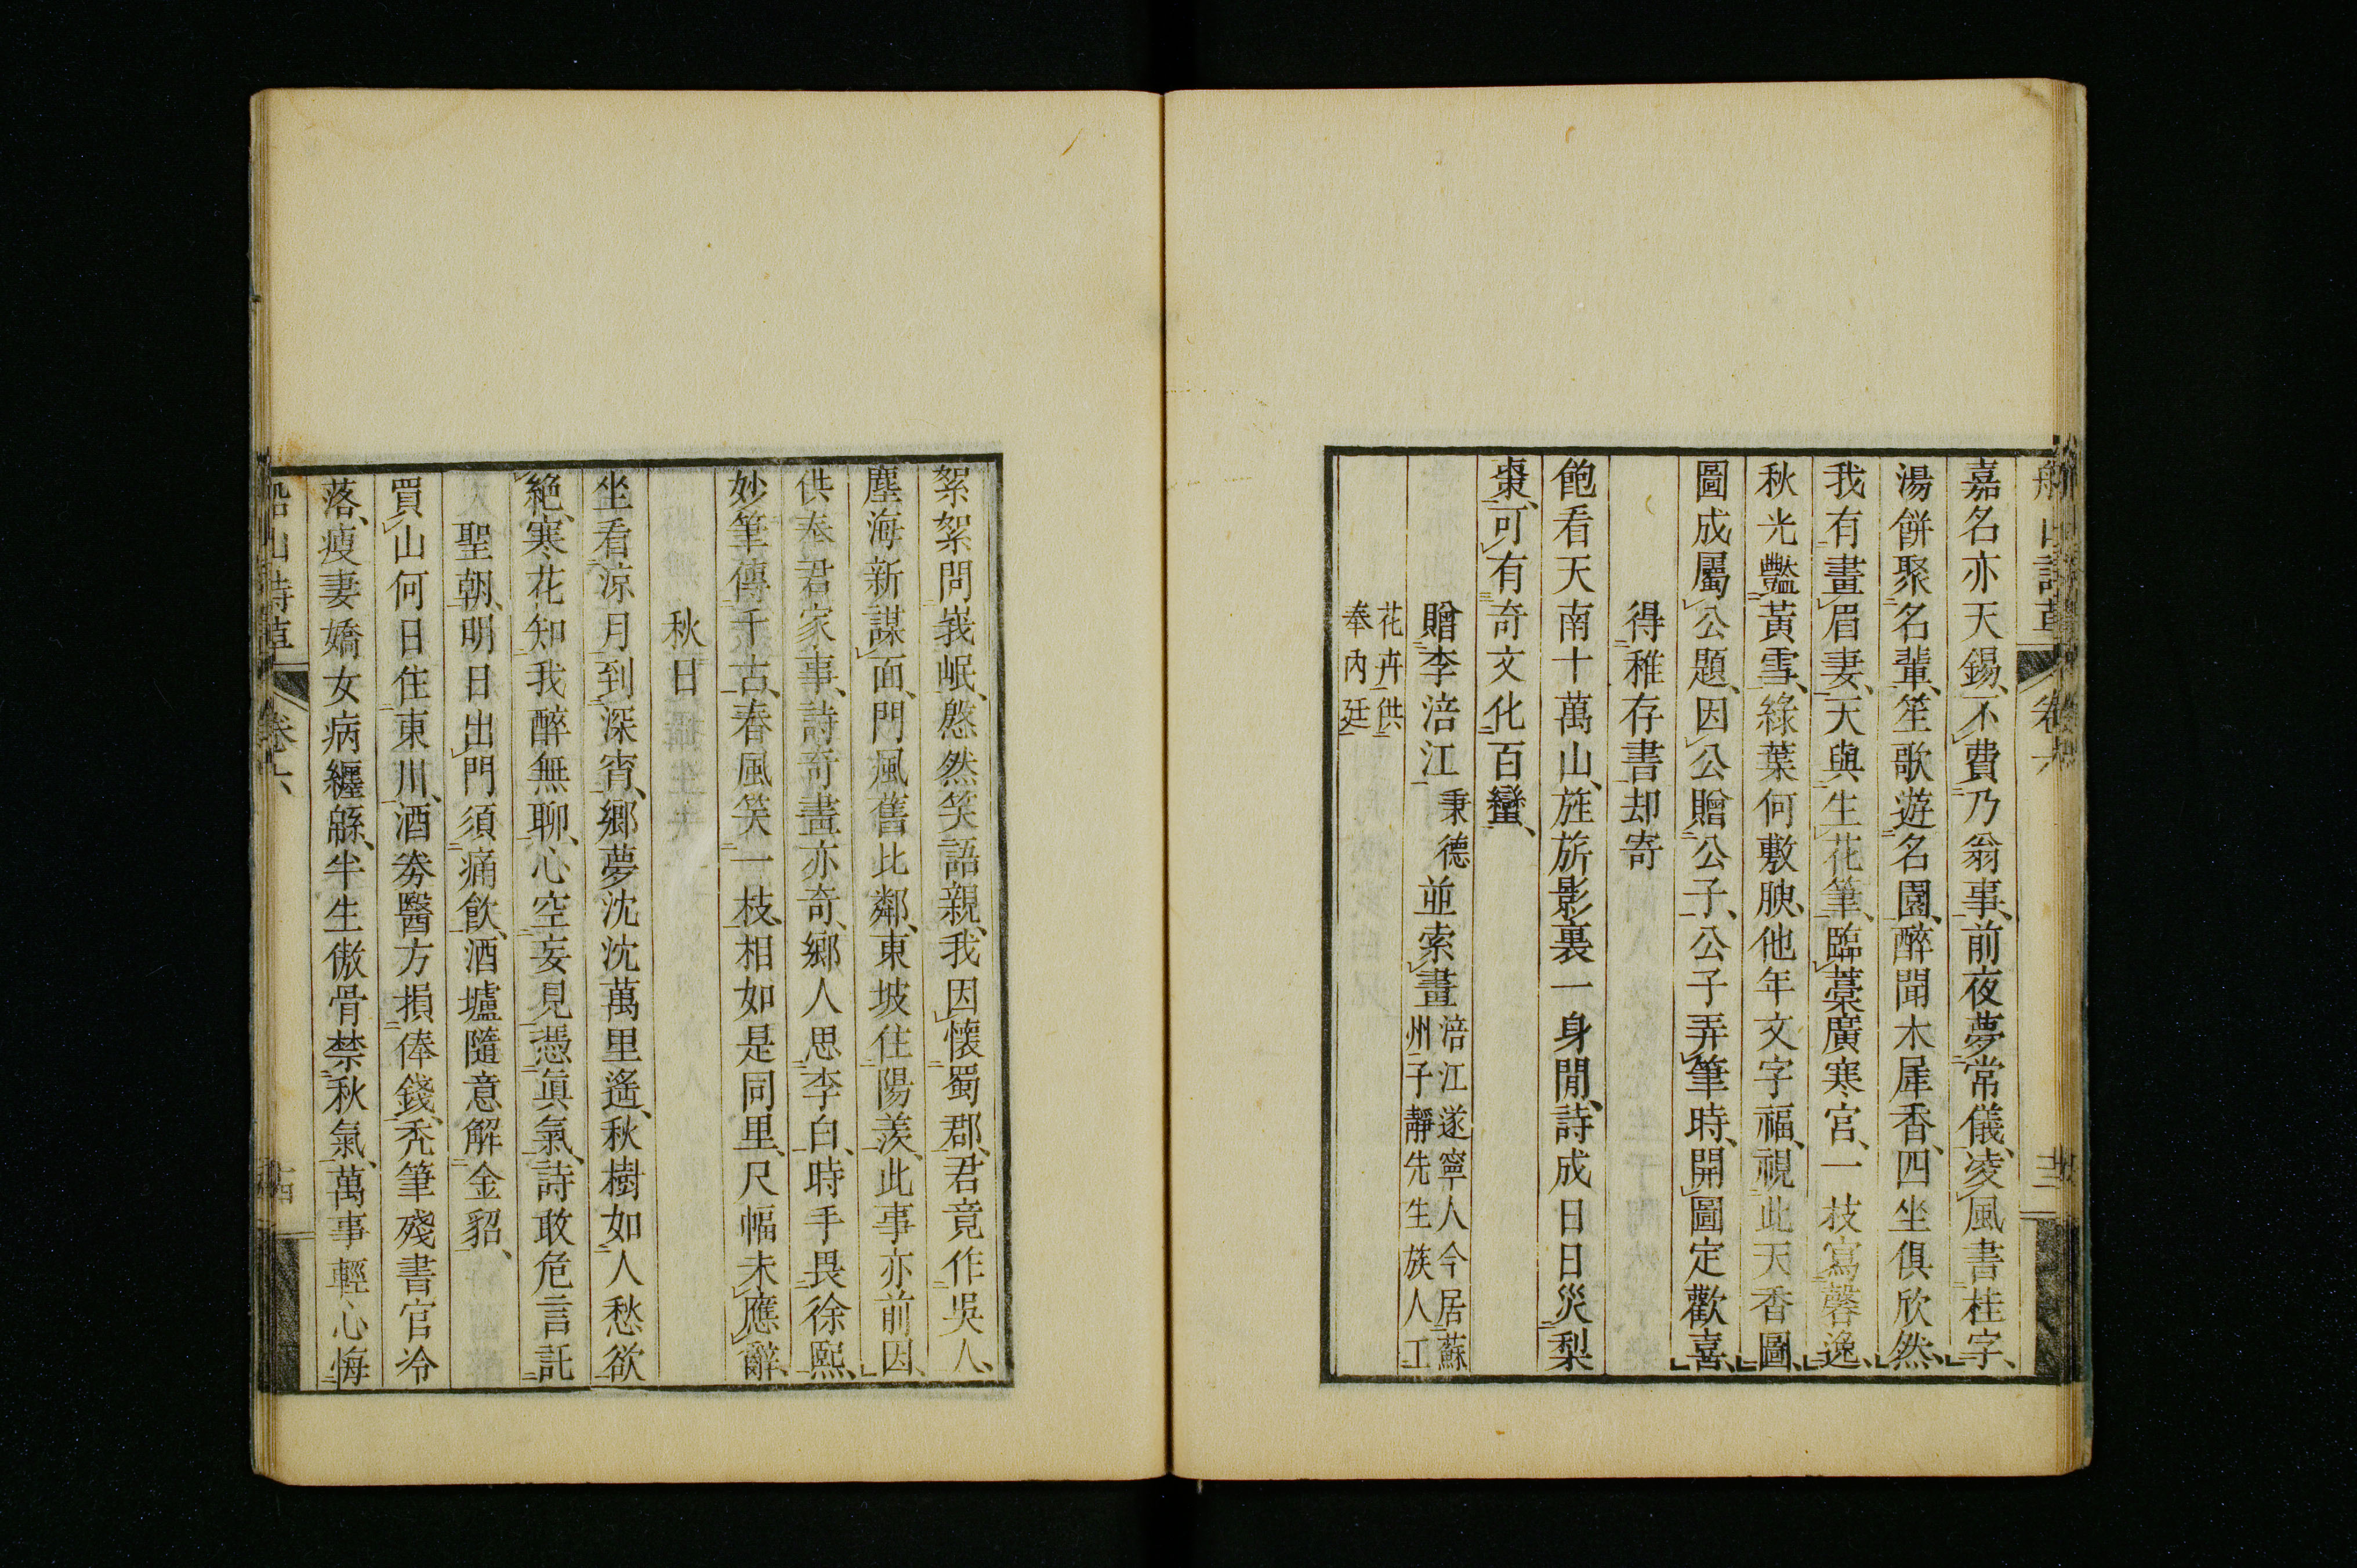 嘉名亦天錫不費乃翁事前夜夢常儀凌風書桂字
湯餅聚名輩笙歌遊名園醉聞木犀香四坐俱欣然
我有畫眉妻天與生花筆臨藁廣寒宮一枝寫馨逸
秋光豔黃雪綠葉何敷腴他年文字福視此天香圖
圖成屬公題因公贈公子公子弄筆時開圖定歡喜
得稚存書却寄
飽看天南十萬山旌旂影裏一身閒詩成日日災梨
棗可有奇文化百蠻
贈李涪江秉德並索畫涪江遂寧人今居蘇
州子靜先生族人工
花卉供
奉內廷
船山詩草 卷六
絮絮問峩岷慇然笑語親我因懷蜀郡君竟作吳人
塵海新謀面門風舊比鄰東坡住陽羨此事亦前因
供奉君家事詩奇畫亦奇鄉人思李白時手畏徐熙
妙筆傳千古春風笑一枝相如是同里尺幅未應辭
秋日
坐看涼月到深宵鄉夢沈沈萬里遙秋樹如人愁欲
絶寒花知我醉無聊心空妄見憑眞氣詩敢危言託
聖朝明日出門須痛飮酒壚隨意解金貂
買山何日住東川酒券醫方損俸錢禿筆殘書官冷
落瘦妻嬌女病纒緜半生傲骨禁秋氣萬事輕心悔
船山詩草 卷六 十四